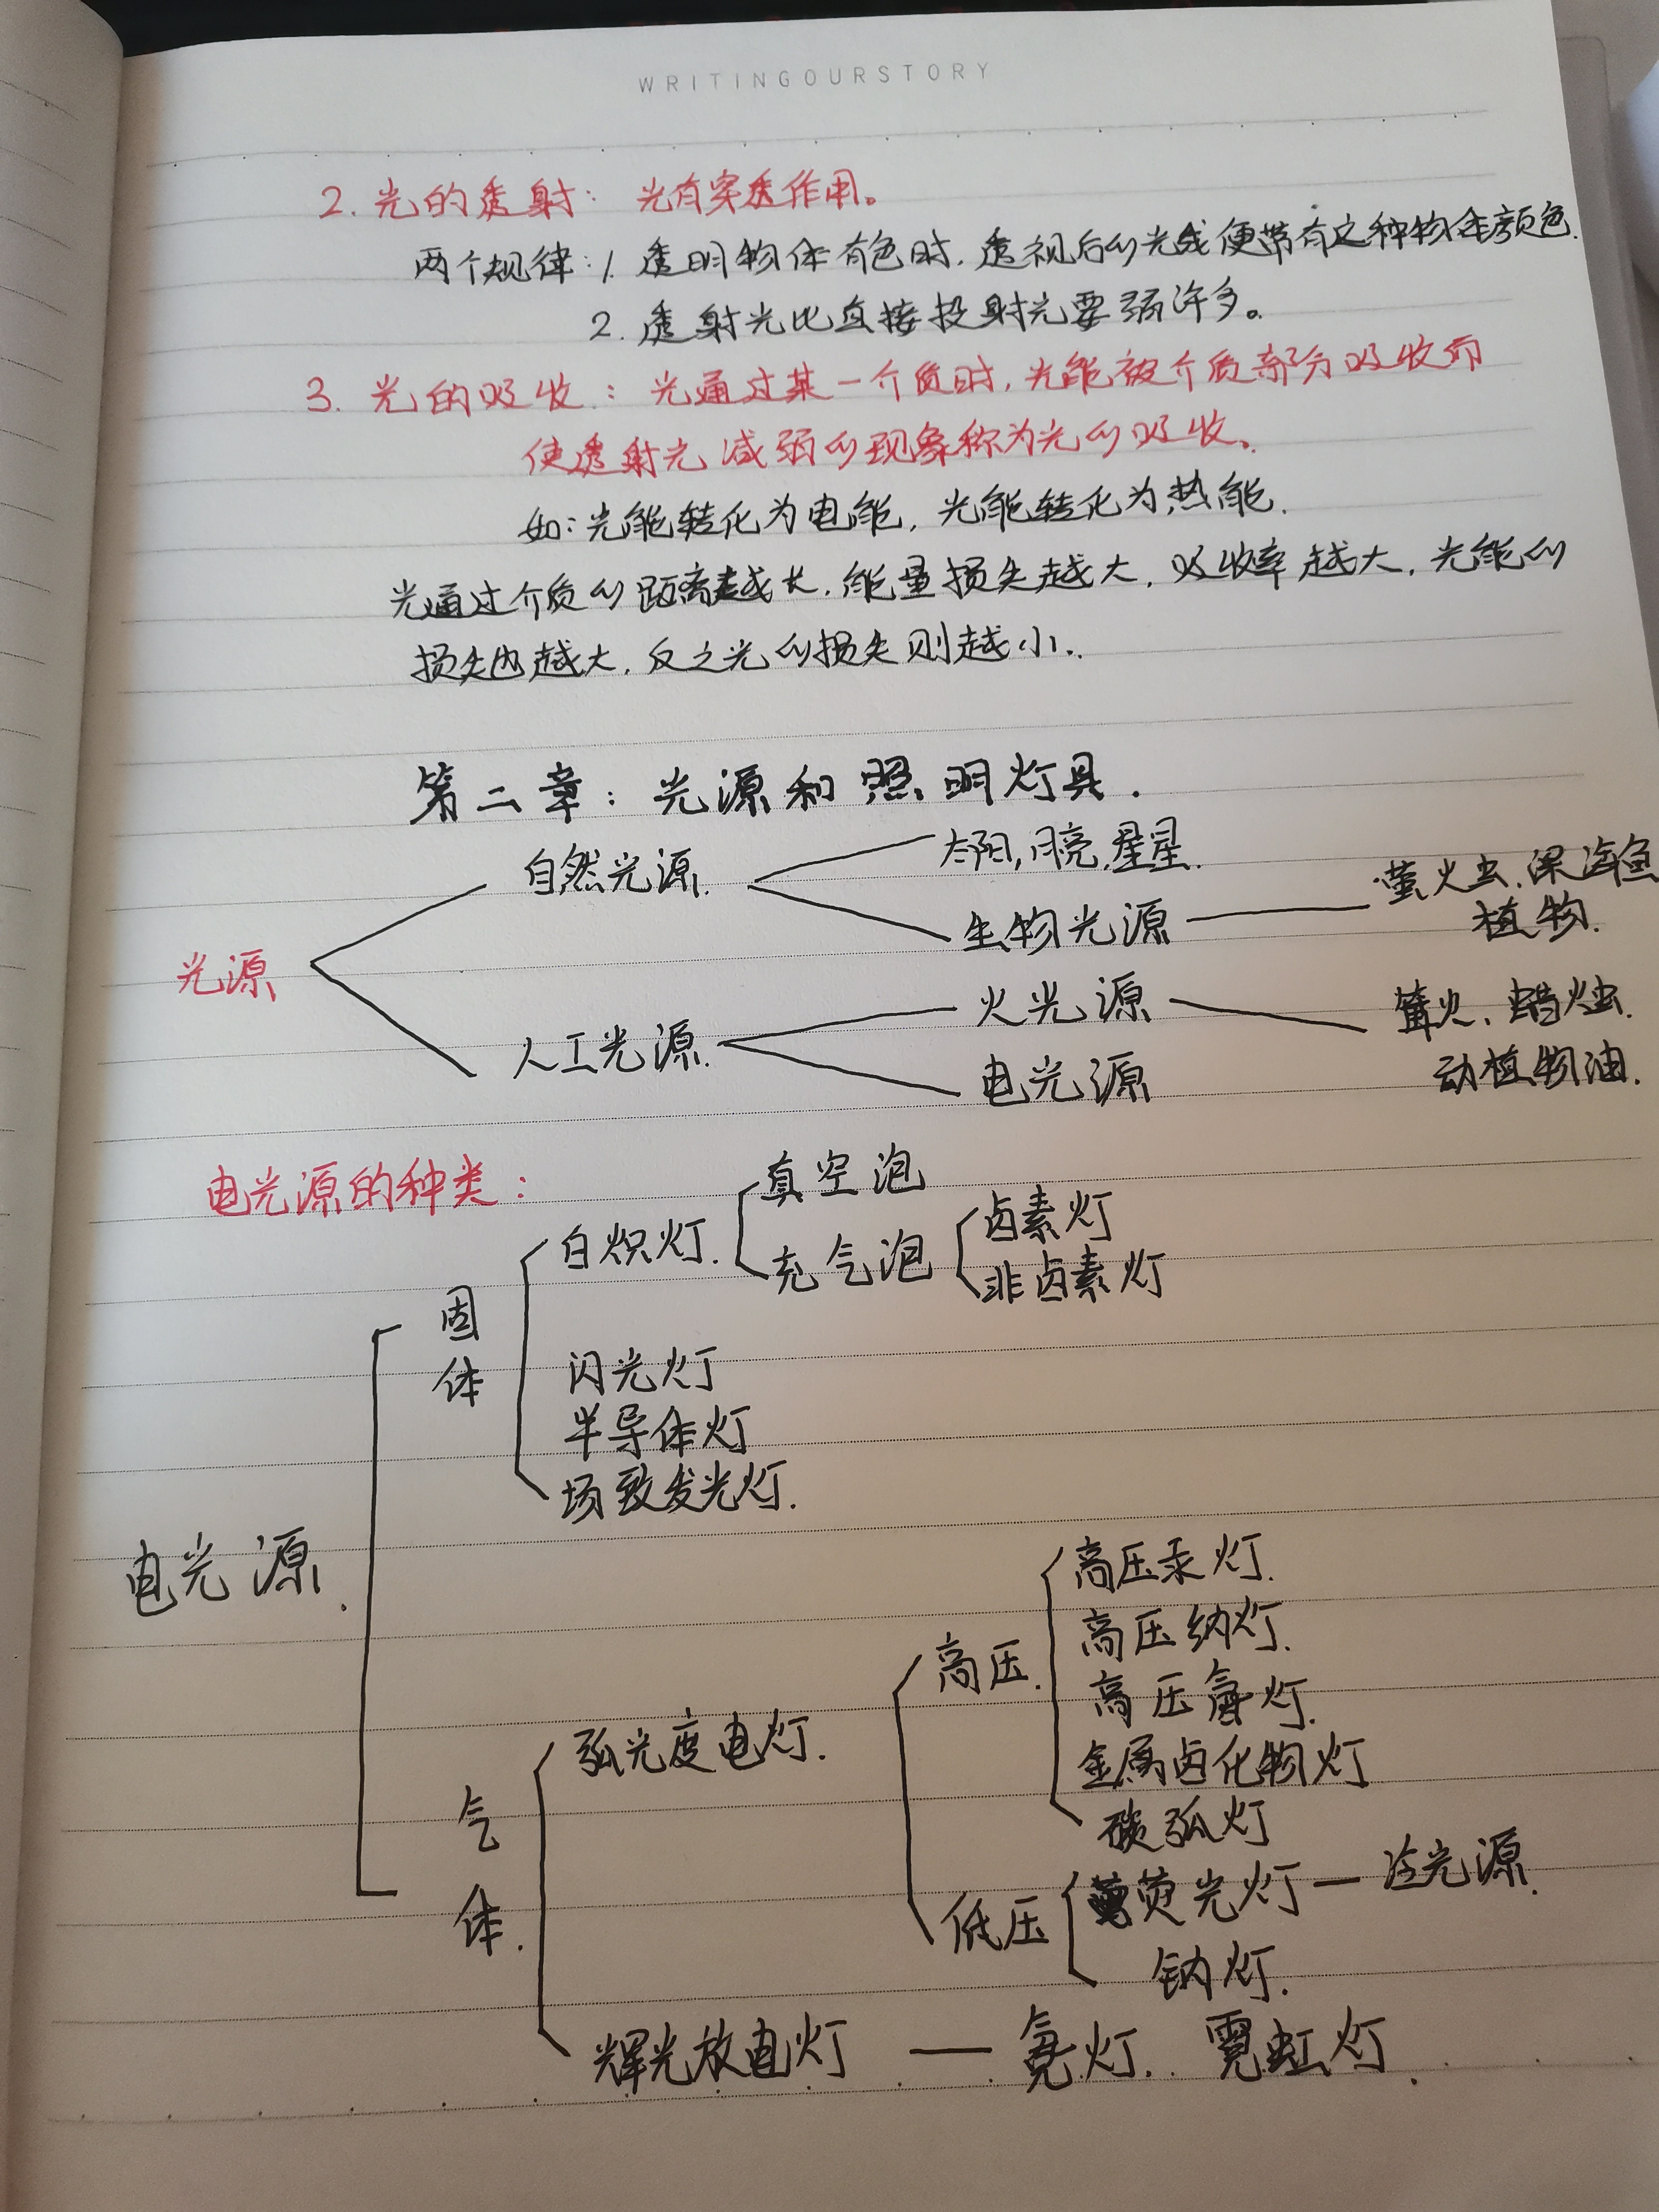 WRITINGOURSTORY
2. 光的透射： 光有穿透作用。
两个规律：1. 透明物体有色时，透视后的光线便带有这种物体颜色.
2. 透射光比直接投射光要弱许多。
3. 光的吸收：光通过某一介质时，光能被介质部分吸收而
使透射光减弱的现象称为光的吸收。
如：光能转化为电能，光能转化为热能.
光通过介质的距离越长，能量损失越大，吸收率越大，光能的
损失也越大，反之光的损失则越小.
第二章：光源和照明灯具.
自然光源.
太阳，月亮，星星.
生物光源
萤火虫、深海鱼
植物.
光源
人工光源.
火光源
篝火、蜡烛.
动植物油.
电光源
电光源的种类：
真空泡
白炽灯.
充气泡
卤素灯
非卤素灯
固体
闪光灯
半导体灯
场致发光灯.
电光源.
高压汞灯.
高压纳灯.
高压.
高压氙灯.
弧光度电灯.
金属卤化物灯
碳弧灯
气体.
低压
荧光灯—冷光源.
钠灯.
辉光放电灯 — 氖灯. 霓虹灯.